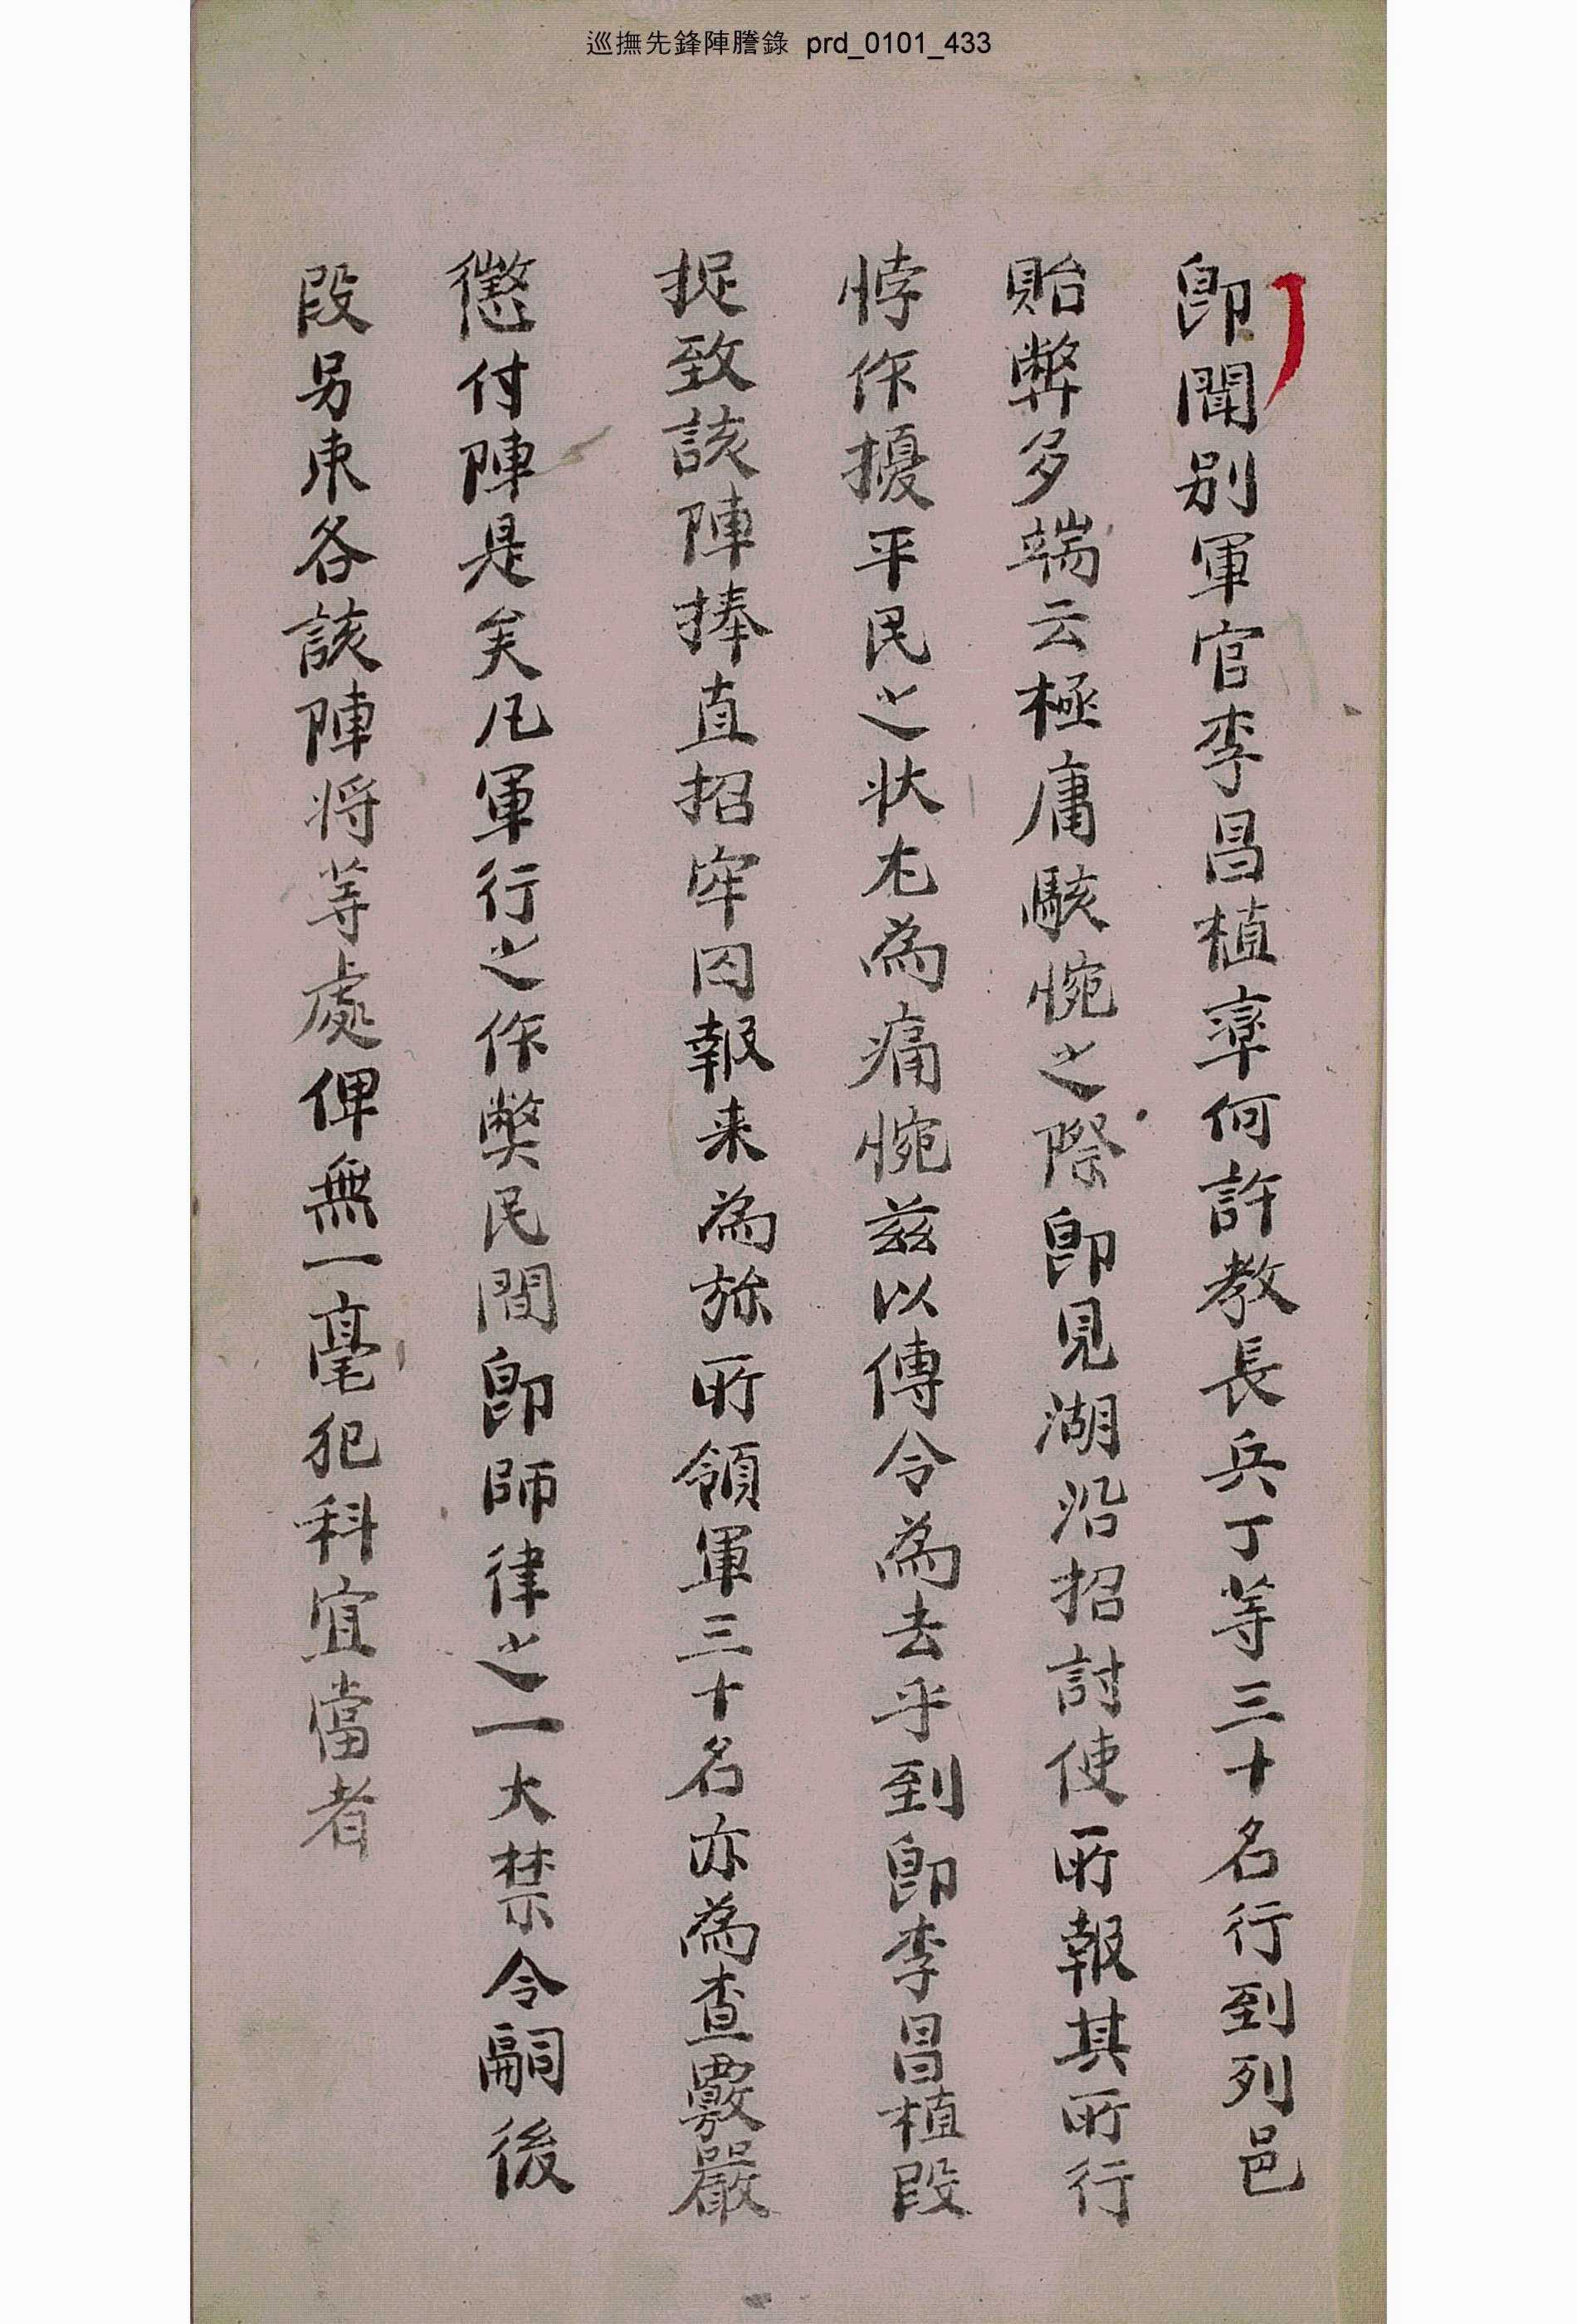 巡撫先鋒陣謄錄 prd_0101_433
卽聞別軍官李昌植率何許敎長兵丁等三十名行到列邑
貽弊多端云極庸駭惋之際卽見湖沿招討使所報其所行
悖作擾平民之狀尤為痛惋玆以傳令為去乎到卽李昌植段
捉致該陣捧直招牢囚報来為旀所領軍三十名亦為查覈嚴
懲付陣是矣凡軍行之作獘民間卽師律之一大禁令嗣後
段另束各該陣將等處俾無一毫犯科宜當者